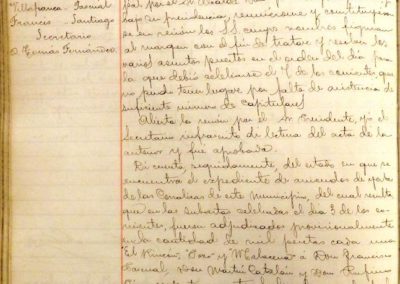 Villafranca - Pascual
Francis - Santiago
Secretario
D. Tomás Fernández
pal por el Sr. Alcalde
bajo su presidencia, reuniéronse y constituyéronse
en su reunión los S.S. cuyos nombres figuran
al margen con el fin de tratar y resolver los
varios asuntos puestos en el orden del día para
la que debió celebrarse el 7 de los corrientes que
no pudo tener lugar por falta de asistencia de
suficiente número de Capitulares
Abierta la reunión por el Sr. Presidente, yo el
Secretario infrascrito di lectura del acta de la
anterior y fué aprobada.
Di cuenta, seguidamente, del estado en que se
encuentra el expediente de arriendos de
de las Corralizas de este Municipio, del cual resulta
que en las subastas celebradas el día 3 de los co-
rrientes, fueron adjudicadas provisionalmente
en la cantidad de mil pesetas cada una
"El Rincón", y á Don Francisco
Pascual, Don Martín Catalán y Don Rufino